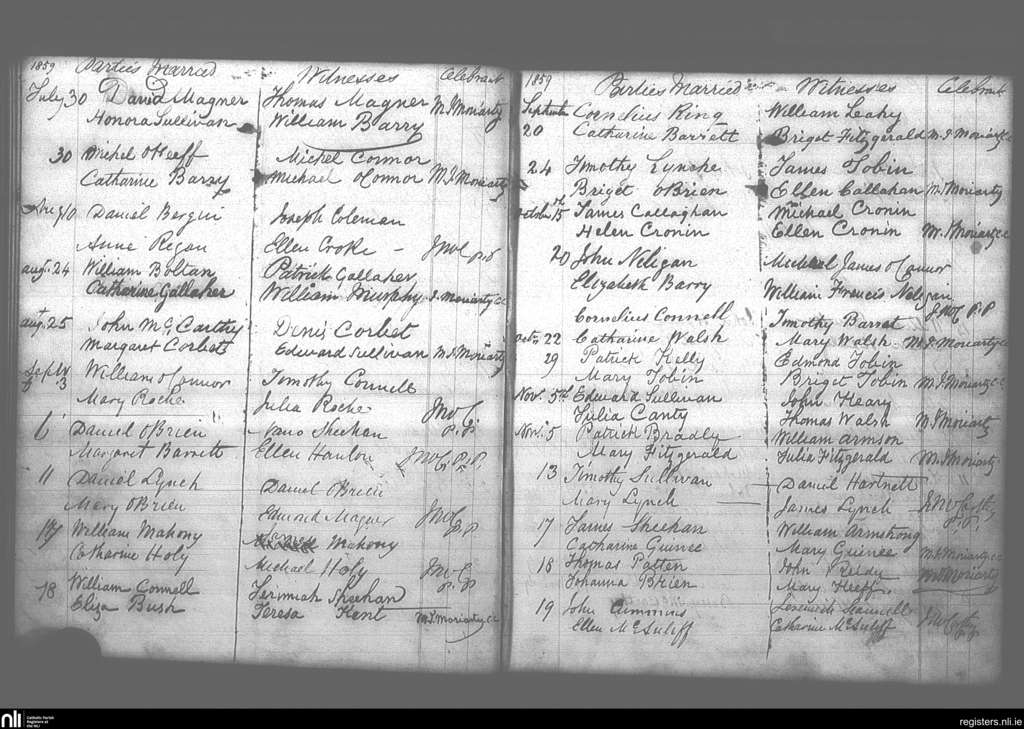 1859 Parties Married Witnesses Celebrant
July 30 David Magner Thomas Magner M.J. Moriarty
Honora Sullivan William Barry
30 Michel O'Keeff Michel Connor
Catharine Barry Michael O'Connor M.J. Moriarty
Aug 10 Daniel Bergin Joseph Coleman
Anne Regan Ellen Cooke
Aug. 24 William Boltan Patrick Gallaher
Catharine Gallaher William Murphy J. Moriarty CC
Aug. 25 John McCarthy Denis Corbet
Margaret Corbett Edward Sullivan M.J. Moriarty
Septbr 3 William O'Connor Timothy Connell
Mary Roche Julia Roche
6 Daniel O'Brien Nano Sheehan P.P.
Margaret Barrett Ellen Hanlon P.P.
11 Daniel Lynch Daniel O'Brien
Mary O'Brien Edmond Magner P.P.
17 William Mahony Mahony
Catharine Holy Michael Holy P.P.
18 William Connell Jeremiah Sheehan
Eliza Bush Teresa Kent M.J. Moriarty CC
1859 Parties Married Witnesses Celebrant
Septemb 20 Cornelius Ring William Leahy
Catharine Barrett Briget Fitzgerald M.J. Moriarty CC
24 Timothy Lynche James Tobin
Briget O'Brien Ellen Callahan M.J. Moriarty
October 15th James Callaghan Michael Cronin
Helen Cronin Ellen Cronin M.J. Moriarty CC
20 John Neligan Michael James O'Connor
Elizabeth Barry William Francis Neligan P.P
Cornelius Connell Timothy Barrat
Octr. 22 Catharine Walsh Mary Walsh M.J. Moriarty CC
29 Patrick Kelly Edmond Tobin
Mary Tobin Briget Tobin M.J. Moriarty CC
Nov. 5th Edward Sullivan John Heary
Julia Canty Thomas Walsh M.J. Moriarty
Nov. 5 Patrick Bradly William Armson
Mary Fitzgerald Julia Fitzgerald M.J. Moriarty
13 Timothy Sullivan Daniel Hartnett
Mary Lynch James Lynch P.P.
17 James Sheehan William Armstrong
Catharine Guinee Mary Guinee M.J. Moriarty CC
18 Thomas Patten John Reidy M.J. Moriarty
Johanna Brien Mary Keeffe
19 John Cummins
Ellen McAuliff Catharine McAuliff
nli Catholic Parish Registers at the NLI
registers.nli.ie